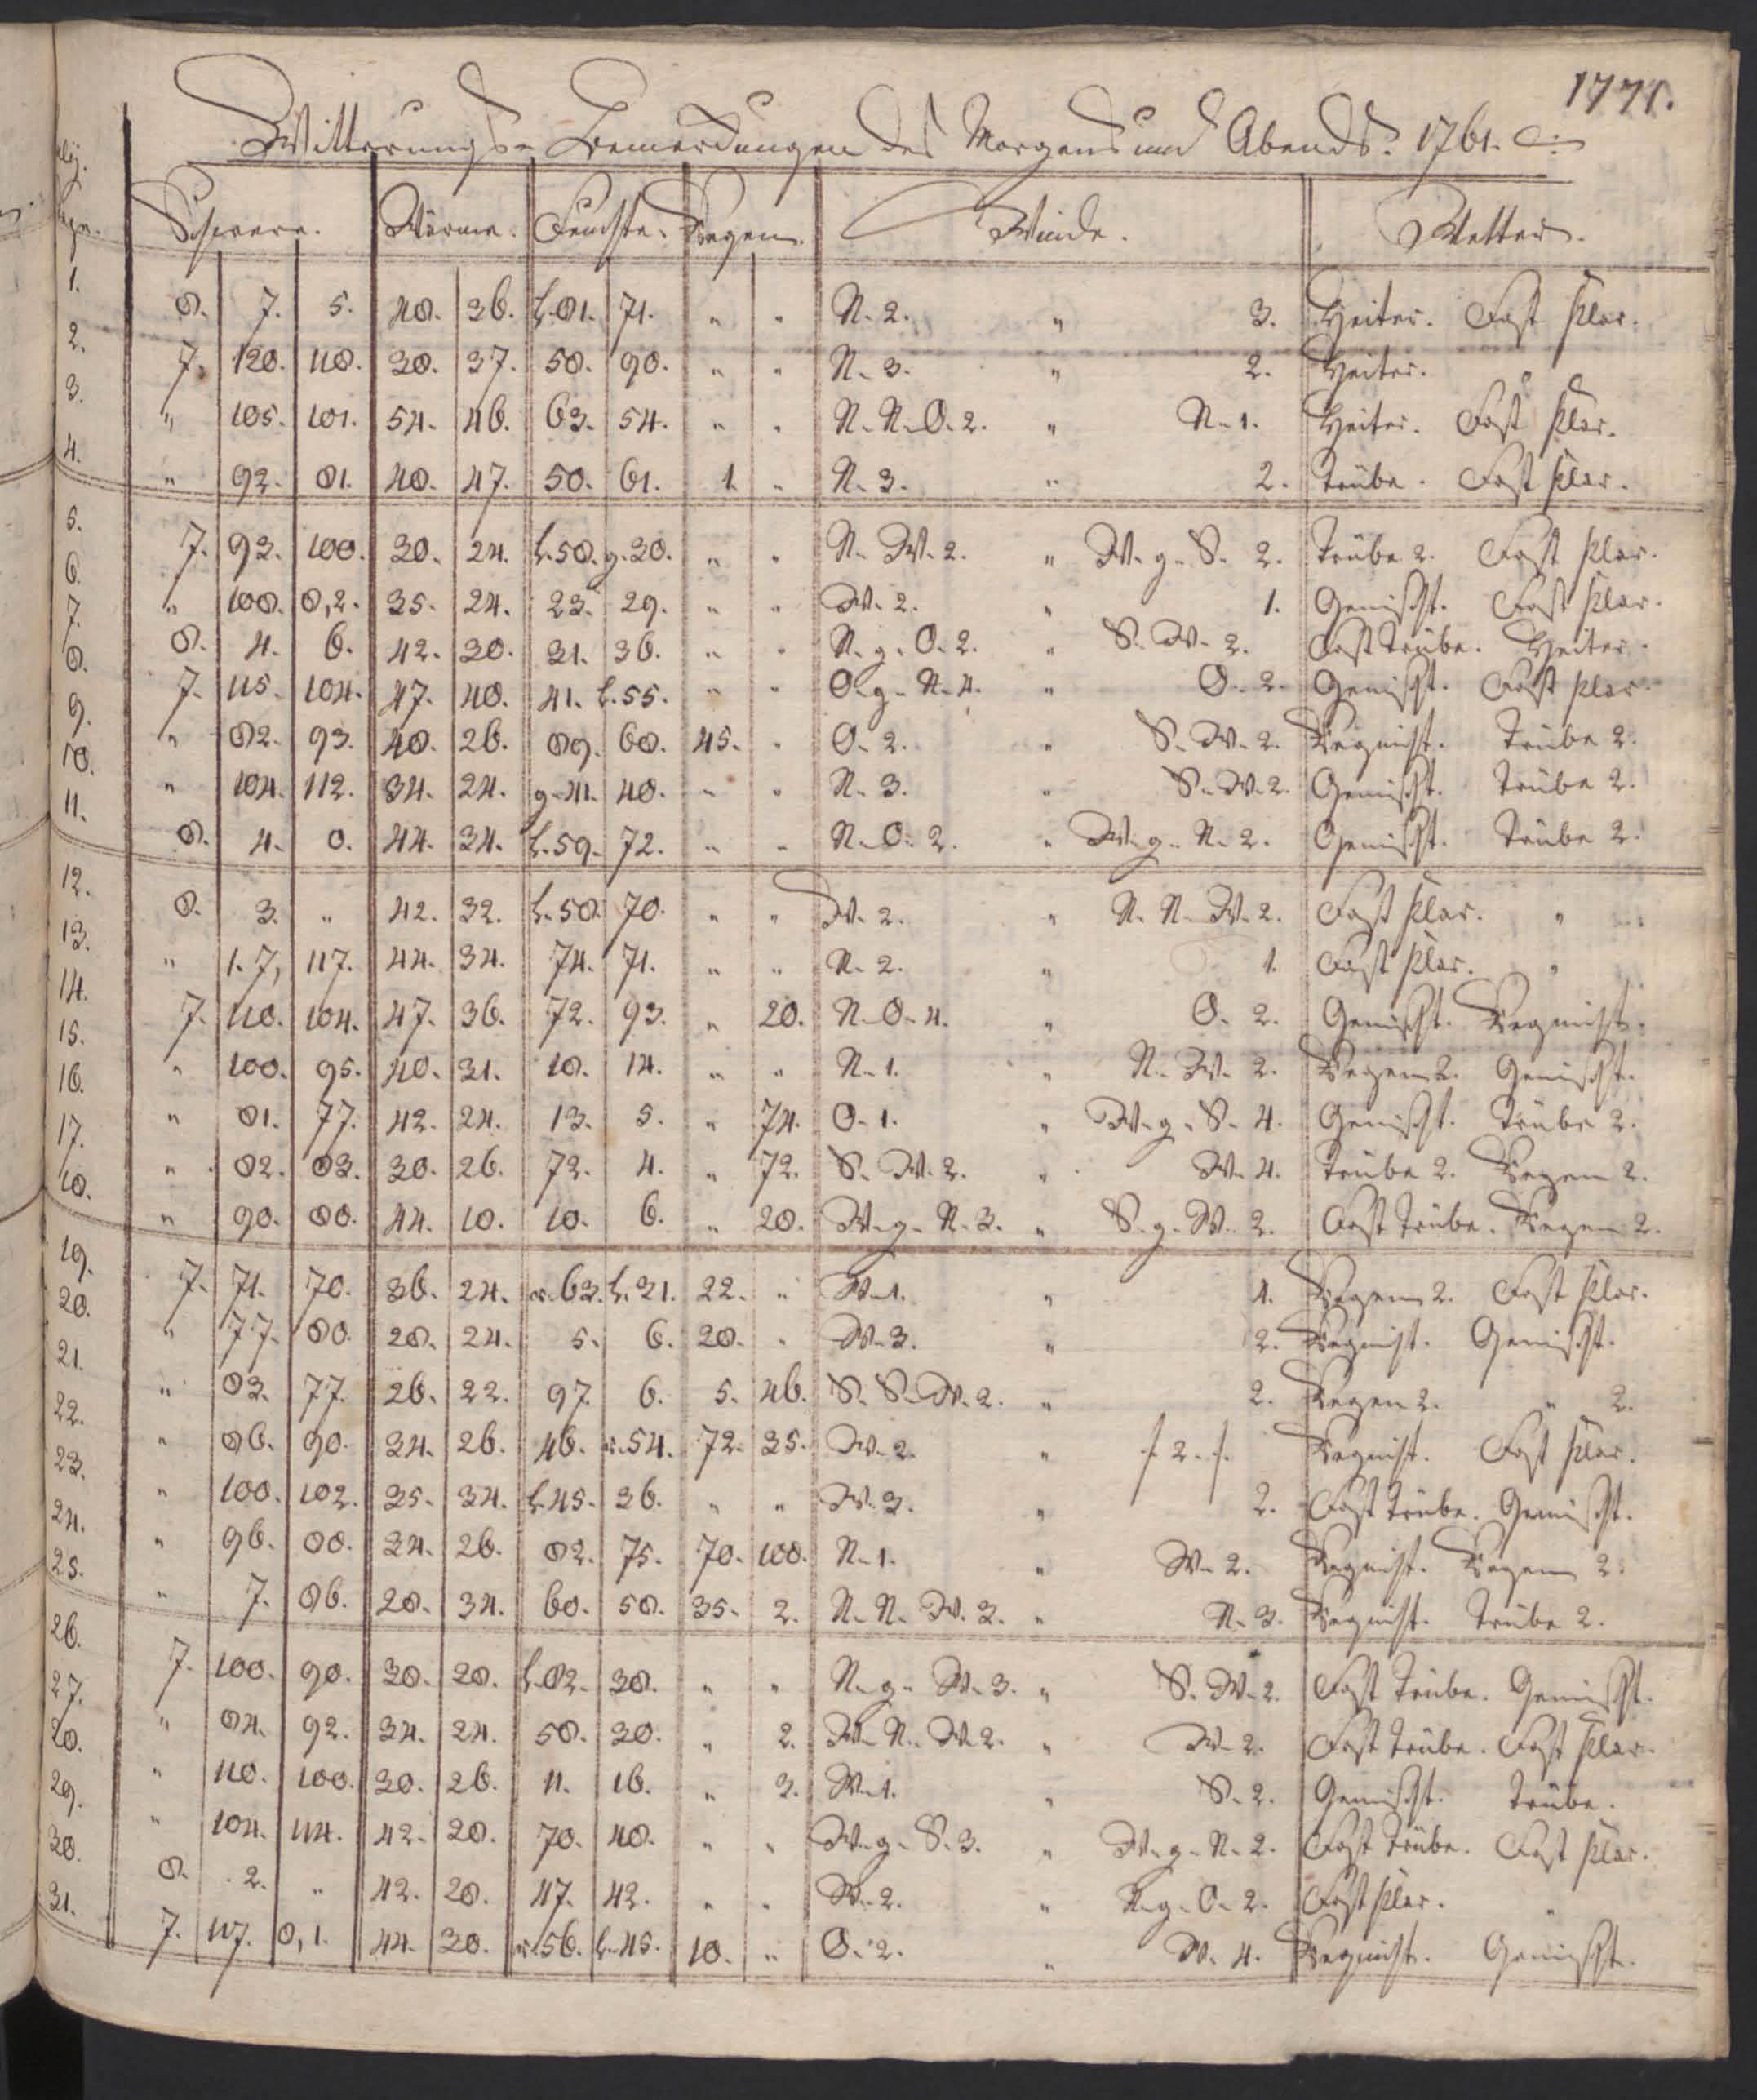 1771.
Witterungs-Bemerckungen des Morgens und Abends. 1761.
Schwere. Wärme. Feuchte. Regen. Winde. Wetter.
1. 8. 7. 5. 48. 36. h.81. 71. " " N. 2. " 3. Heiter. Fast klar.
2. 7. 120. 118. 38. 37. 58. 90. " " N. 3. " 2. Heiter. "
3. " 105. 101. 54. 46. 63. 54. " " N. N. O. 2. " N. 1. Heiter. Fast klar.
4. " 92. 81. 48. 47. 50. 61. 1. " N. 3. " 2. Trübe. Fast klar.
5. 7. 93. 100. 30. 24. h.58. g.30. " " N. W. 2. " W. g. S. 2. Trübe 2. Fast klar.
6. " 108. 8,2. 35. 24. 23. 29. " " W. 2. " 1. Gemischt. Fast klar.
7. 8. 4. 6. 42. 30. 31. 36. " " N. g. O. 2. " S. W. 2. Fast trübe. Heiter.
8. 7. 115. 104. 47. 40. 41. h.55. " " O. g. N. 4. " O. 2. Gemischt. Fast klar.
9. " 82. 93. 40. 26. 89. 68. 45. " O. 2. " S. W. 2. Regnicht. Trübe 2.
10. " 104. 112. 34. 24. g.41. 48. " " N. 3. " S. W. 2. Gemischt. Trübe 2.
11. 8. 4. 0. 44. 34. h.59. 72. " " N. O. 2. " W. g. N. 2. Gemischt. Trübe 2.
12. 8. 3. " 42. 32. h.58. 70. " " W. 2. " N. N. W. 2. Fast klar. "
13. " 1. 7, 117. 44. 34. 74. 71. " " N. 2. " 1. Fast klar. "
14. 7. 110. 104. 47. 36. 72. 93. " 20. N. O. 4. " O. 2. Gemischt. Regnicht.
15. " 100. 95. 40. 31. 10. 14. " " N. 1. " N. W. 2. Regen 2. Gemischt.
16. " 81. 77. 42. 24. 13. 5. " 74. O. 1. " W. g. S. 4. Gemischt. Trübe 2.
17. " 82. 83. 30. 26. 72. 4. " 72. S. W. 2. " W. 4. Trübe 2. Regen 2.
18. " 90. 80. 44. 10. 10. 6. " 20. W. g. N. 3. " S. g. W. 2. Fast trübe. Regen 2.
19. 7. 71. 70. 36. 24. r.63. h.31. 22. " W. 1. " 1. Regen 2. Fast klar.
20. " 77. 80. 28. 24. 5. 6. 20. " W. 3. " 2. Regnicht. Gemischt.
21. " 83. 77. 26. 22. 97. 6. 5. 46. S. S. W. 2. " 2. Regen 2. " 2.
22. " 86. 90. 34. 26. 46. r.54. 72. 35. W. 2. " f 2. f. Regnicht. Fast klar.
23. " 100. 102. 35. 34. h.45. 36. " " W. 3. " 2. Fast trübe. Gemischt.
24. " 96. 88. 34. 26. 82. 75. 70. 100. N. 1. " W. 2. Regnicht. Regen 2.
25. " 7. 86. 28. 34. 60. 58. 35. 2. N. N. W. 3. " N. 3. Regnicht. Trübe 2.
26. 7. 100. 90. 30. 20. h.82. 38. " " N. g. W. 3. " S. W. 2. Fast trübe. Gemischt.
27. " 84. 92. 34. 24. 58. 30. " 2. W. N. W. 2. " W. 2. Fast trübe. Fast klar.
28. " 110. 100. 30. 26. 11. 16. " 3. W. 1. " S. 2. Gemischt. Trübe.
29. " 104. 114. 42. 20. 70. 40. " " W. g. S. 3. " W. g. N. 2. Fast trübe. Fast klar.
30. 8. 2. " 42. 28. 47. 42. " " W. 2. " N. g. O. 2. Fast klar. "
31. 7. 117. 8,1. 44. 30. r.56. h.45. 10. " O. 2. " W. 4. Regnicht. Gemischt.